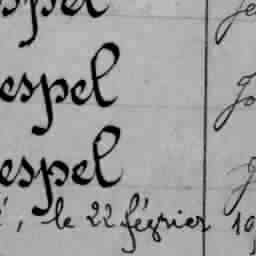 spel
espel
espel
é, le 22 février 19